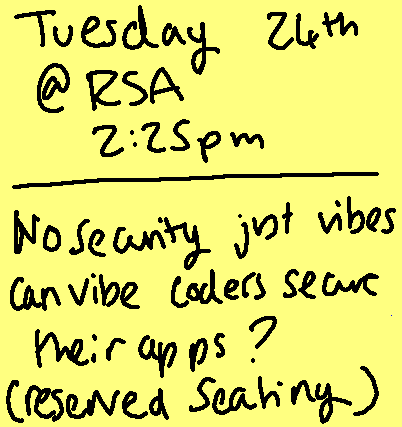 Tuesday 24th
@ RSA
2:25pm
No security just vibes
can vibe coders secure
their apps?
(reserved seating)